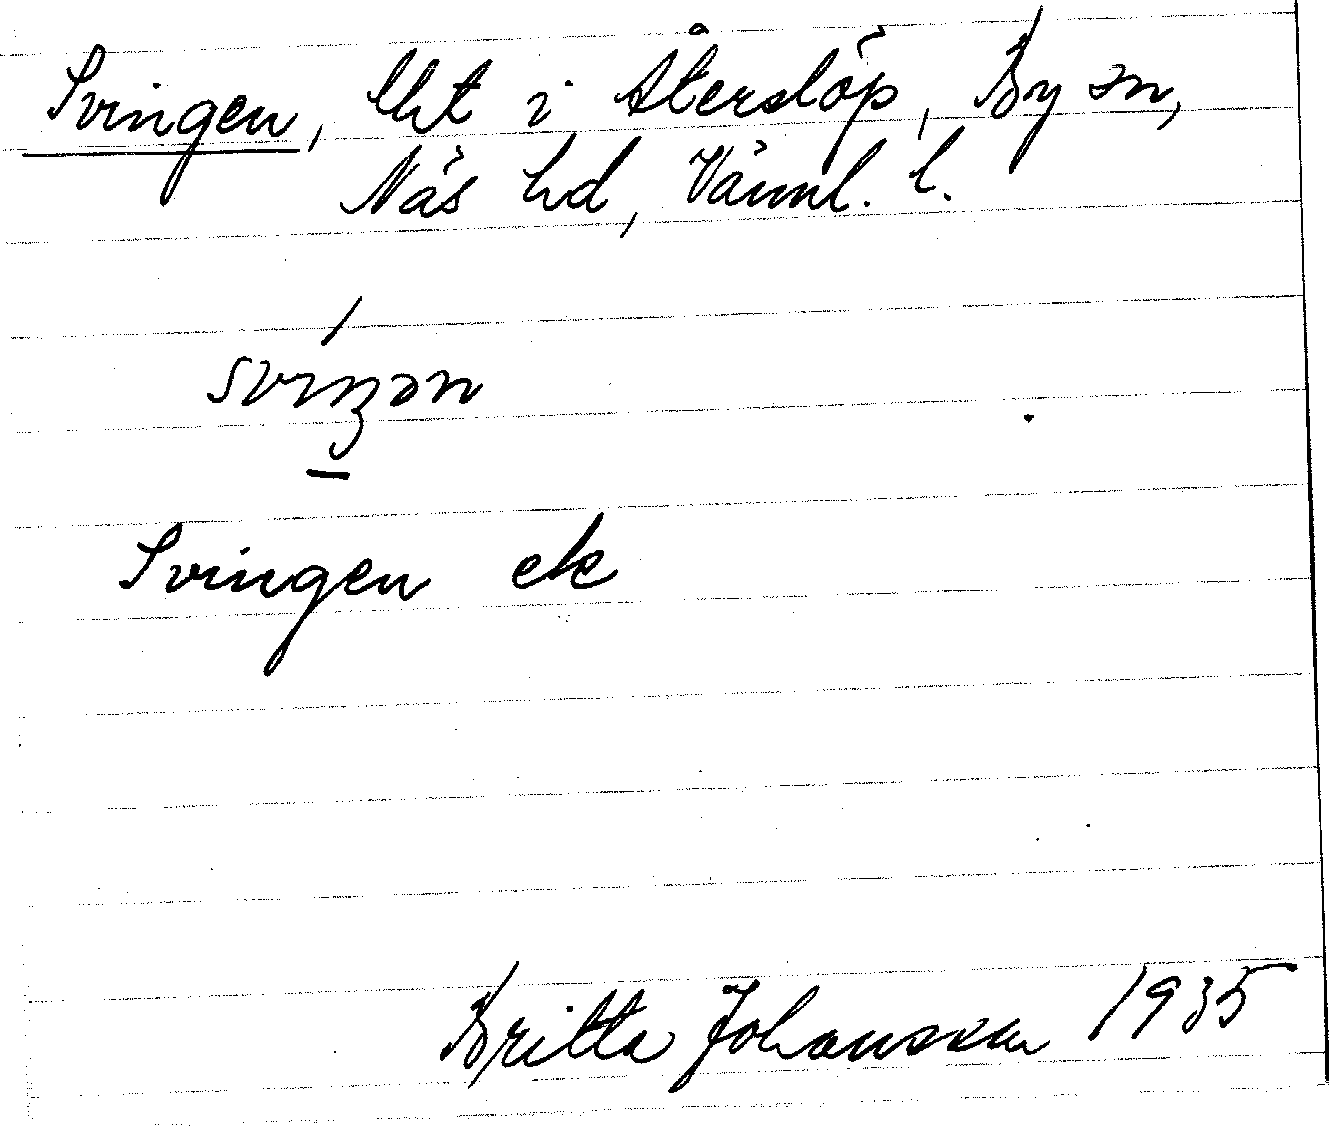 Svingen, lht i Återslöp, By sn,
Näs hd, Värml. l.
Svingen ek
Britta Johansson 1935